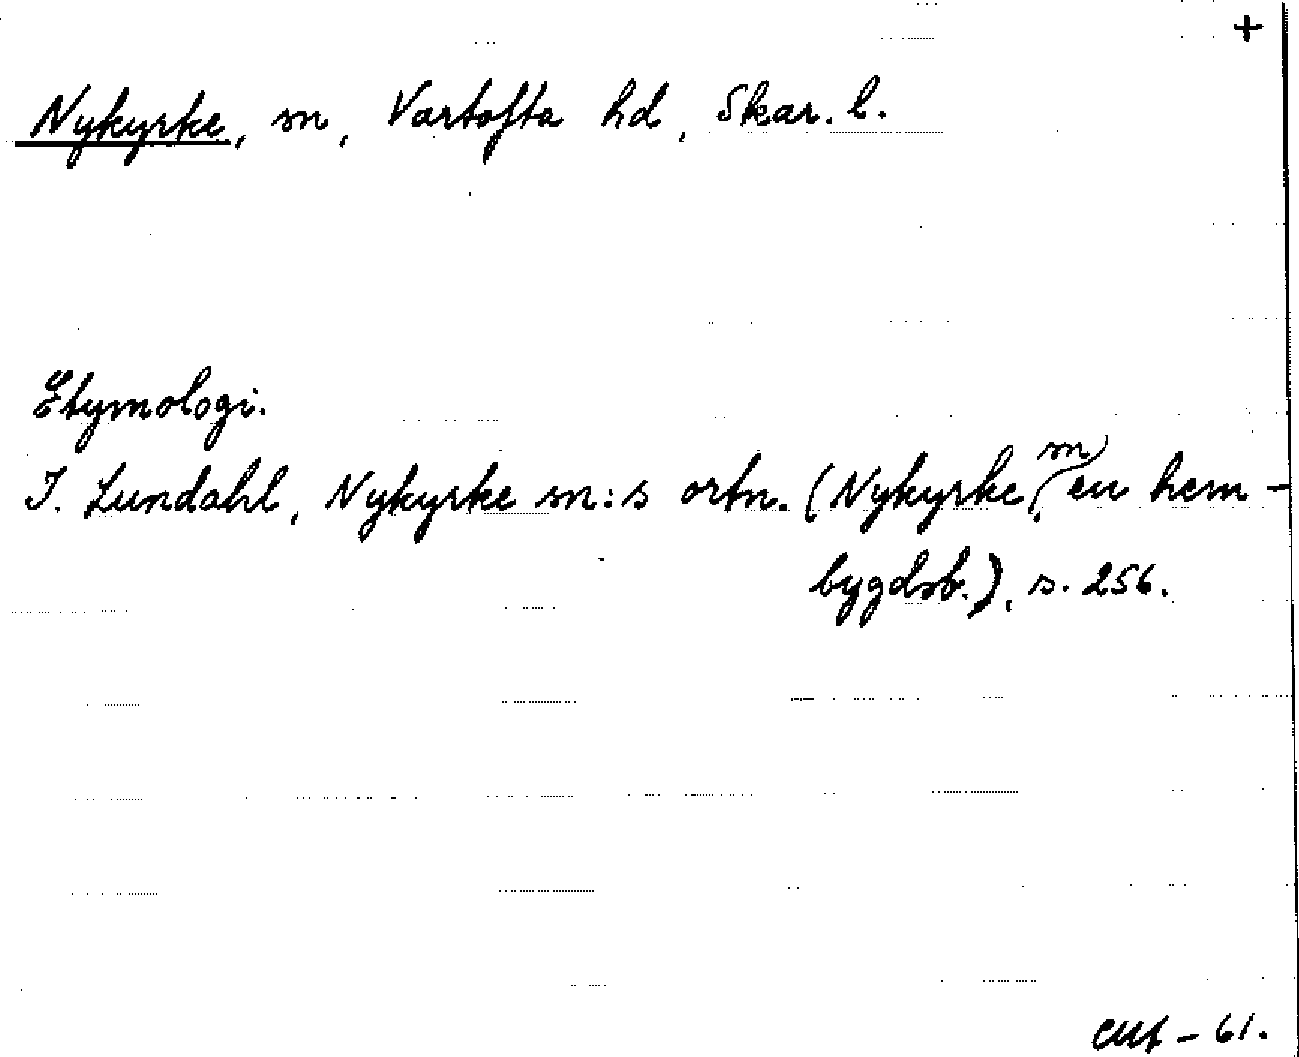 +
Nykyrke, sn, Vartofta hd, Skar. l.
Etymologi.
I. Lundahl, Nykyrke sn:s ortn. (Nykyrke, sn, en hem-
bygdsb.), s. 256.
- 61.